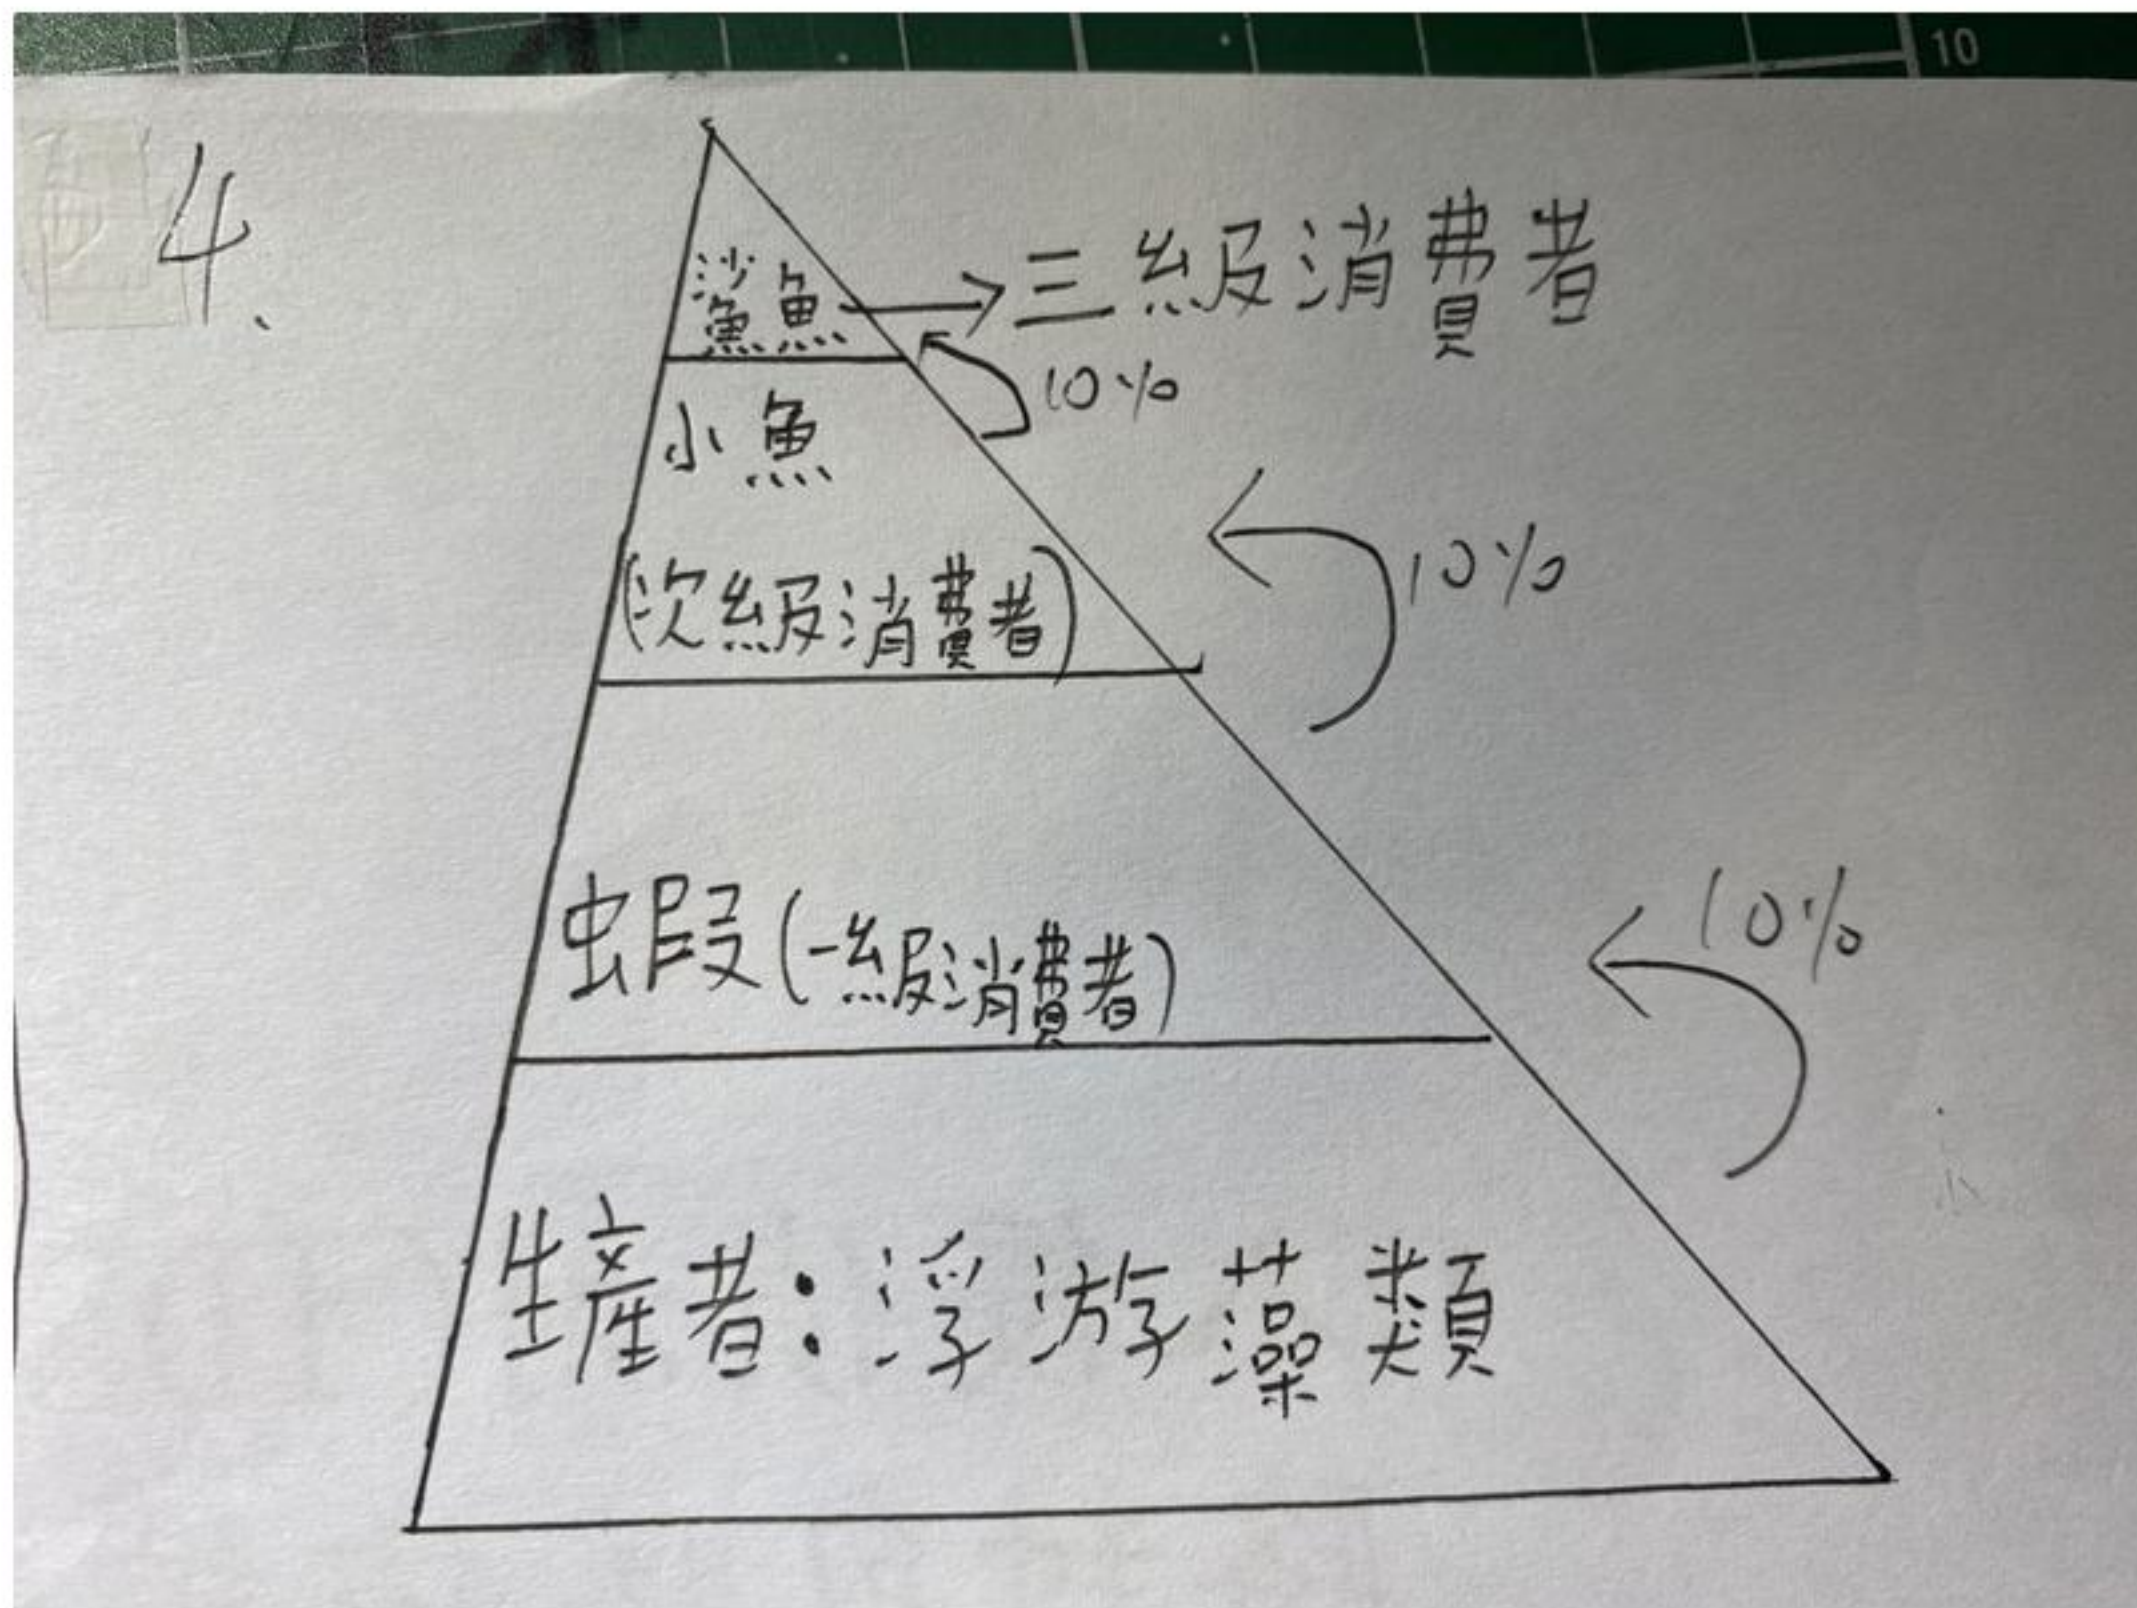 10
4、
沙
鯊魚→三級消費者
10%
小魚
10%
(次級消費者)
10%
蝦(一級消費者)
生產者:浮游藻類